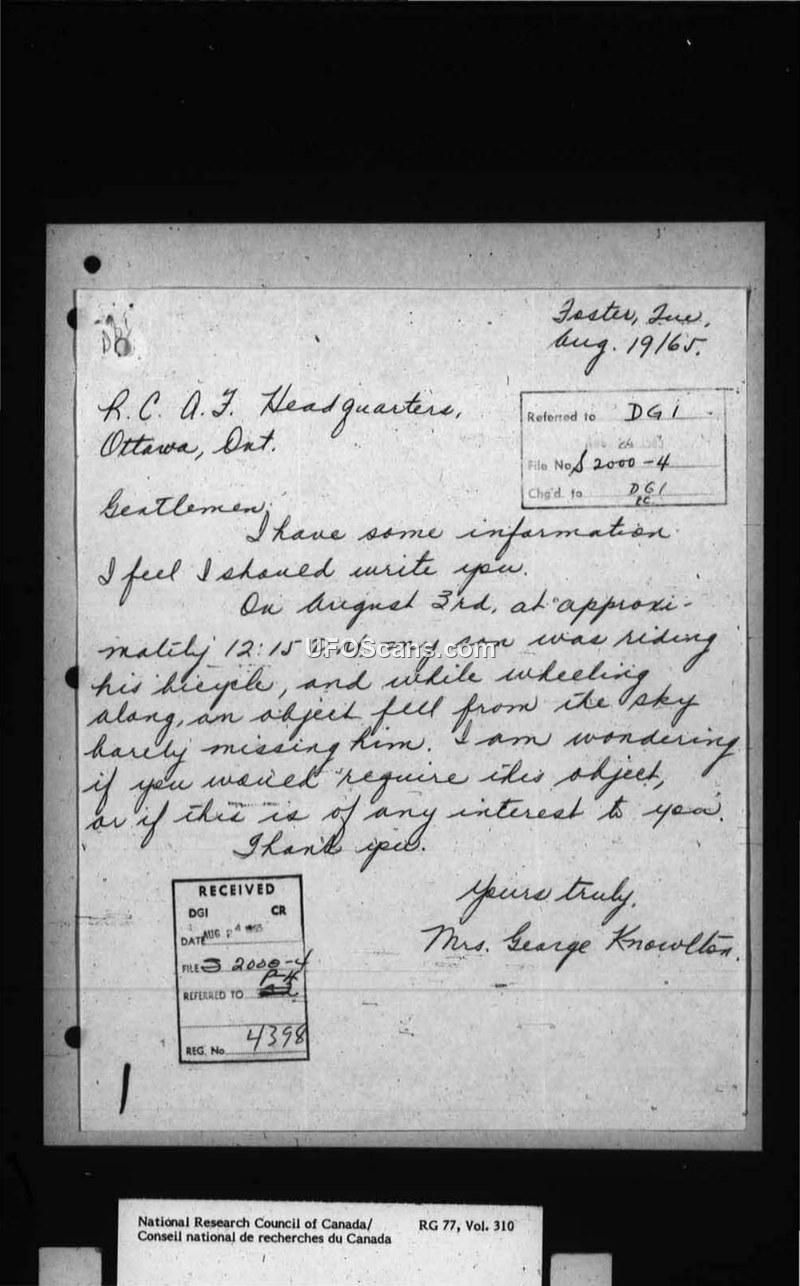 Foster, Que,
Aug. 19/65.
DG
R. C. A. F. Headquarters,
Ottawa, Ont.
Referred to DG1
File No. S 2000-4
Chg'd. to DG1
Gentlemen;
I have some information
I feel I should write you.
On August 3rd, at approxi-
mately 12:15 my son was riding
UFOScans.com
his bicycle, and while wheeling
along, an object fell from the sky
barely missing him. I am wondering
if you would require this object,
or if this is of any interest to you.
Thank you.
Yours truly,
Mrs. George Knowlton.
RECEIVED
DGI CR
DATE AUG 24
FILE S 2000-4
REFERRED TO
REG. No 4398
National Research Council of Canada/ RG 77, Vol. 310
Conseil national de recherches du Canada